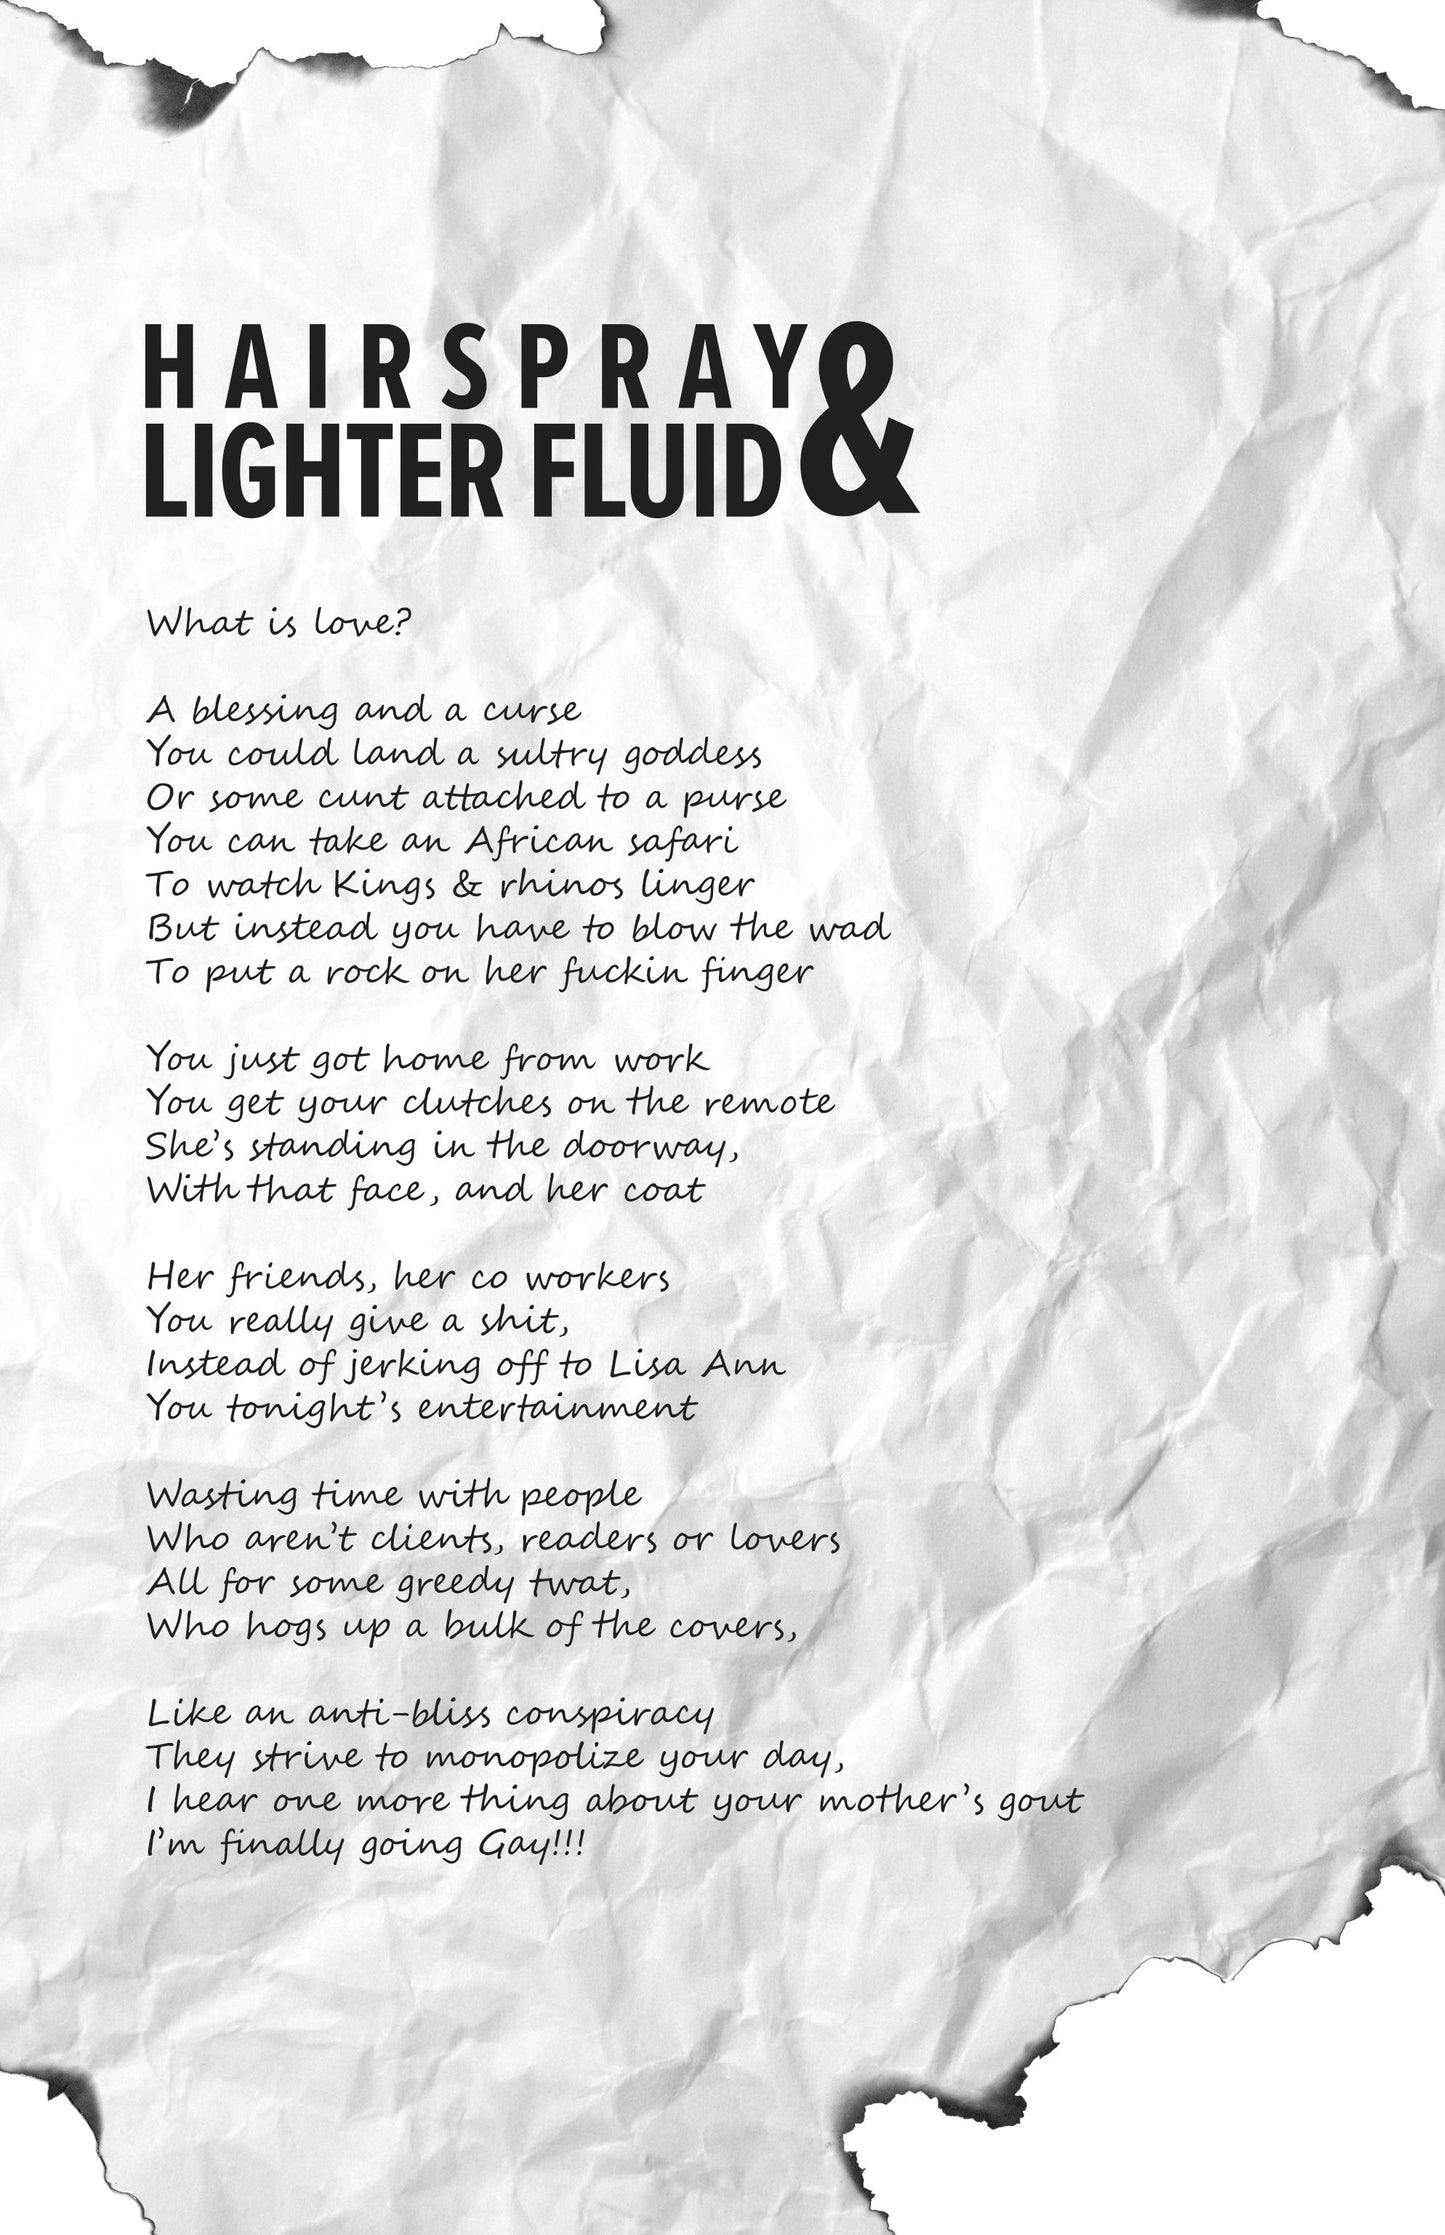 HAIRSPRAY &
LIGHTER FLUID
What is love?
A blessing and a curse
You could land a sultry goddess
Or some cunt attached to a purse
You can take an African safari
To watch Kings & rhinos linger
But instead you have to blow the wad
To put a rock on her fuckin finger
You just got home from work
You get your clutches on the remote
She's standing in the doorway,
With that face, and her coat
Her friends, her co workers
You really give a shit,
Instead of jerking off to Lisa Ann
You tonight's entertainment
Wasting time with people
Who aren't clients, readers or lovers
All for some greedy twat,
Who hogs up a bulk of the covers,
Like an anti-bliss conspiracy
They strive to monopolize your day,
I hear one more thing about your mother's gout
I'm finally going Gay!!!